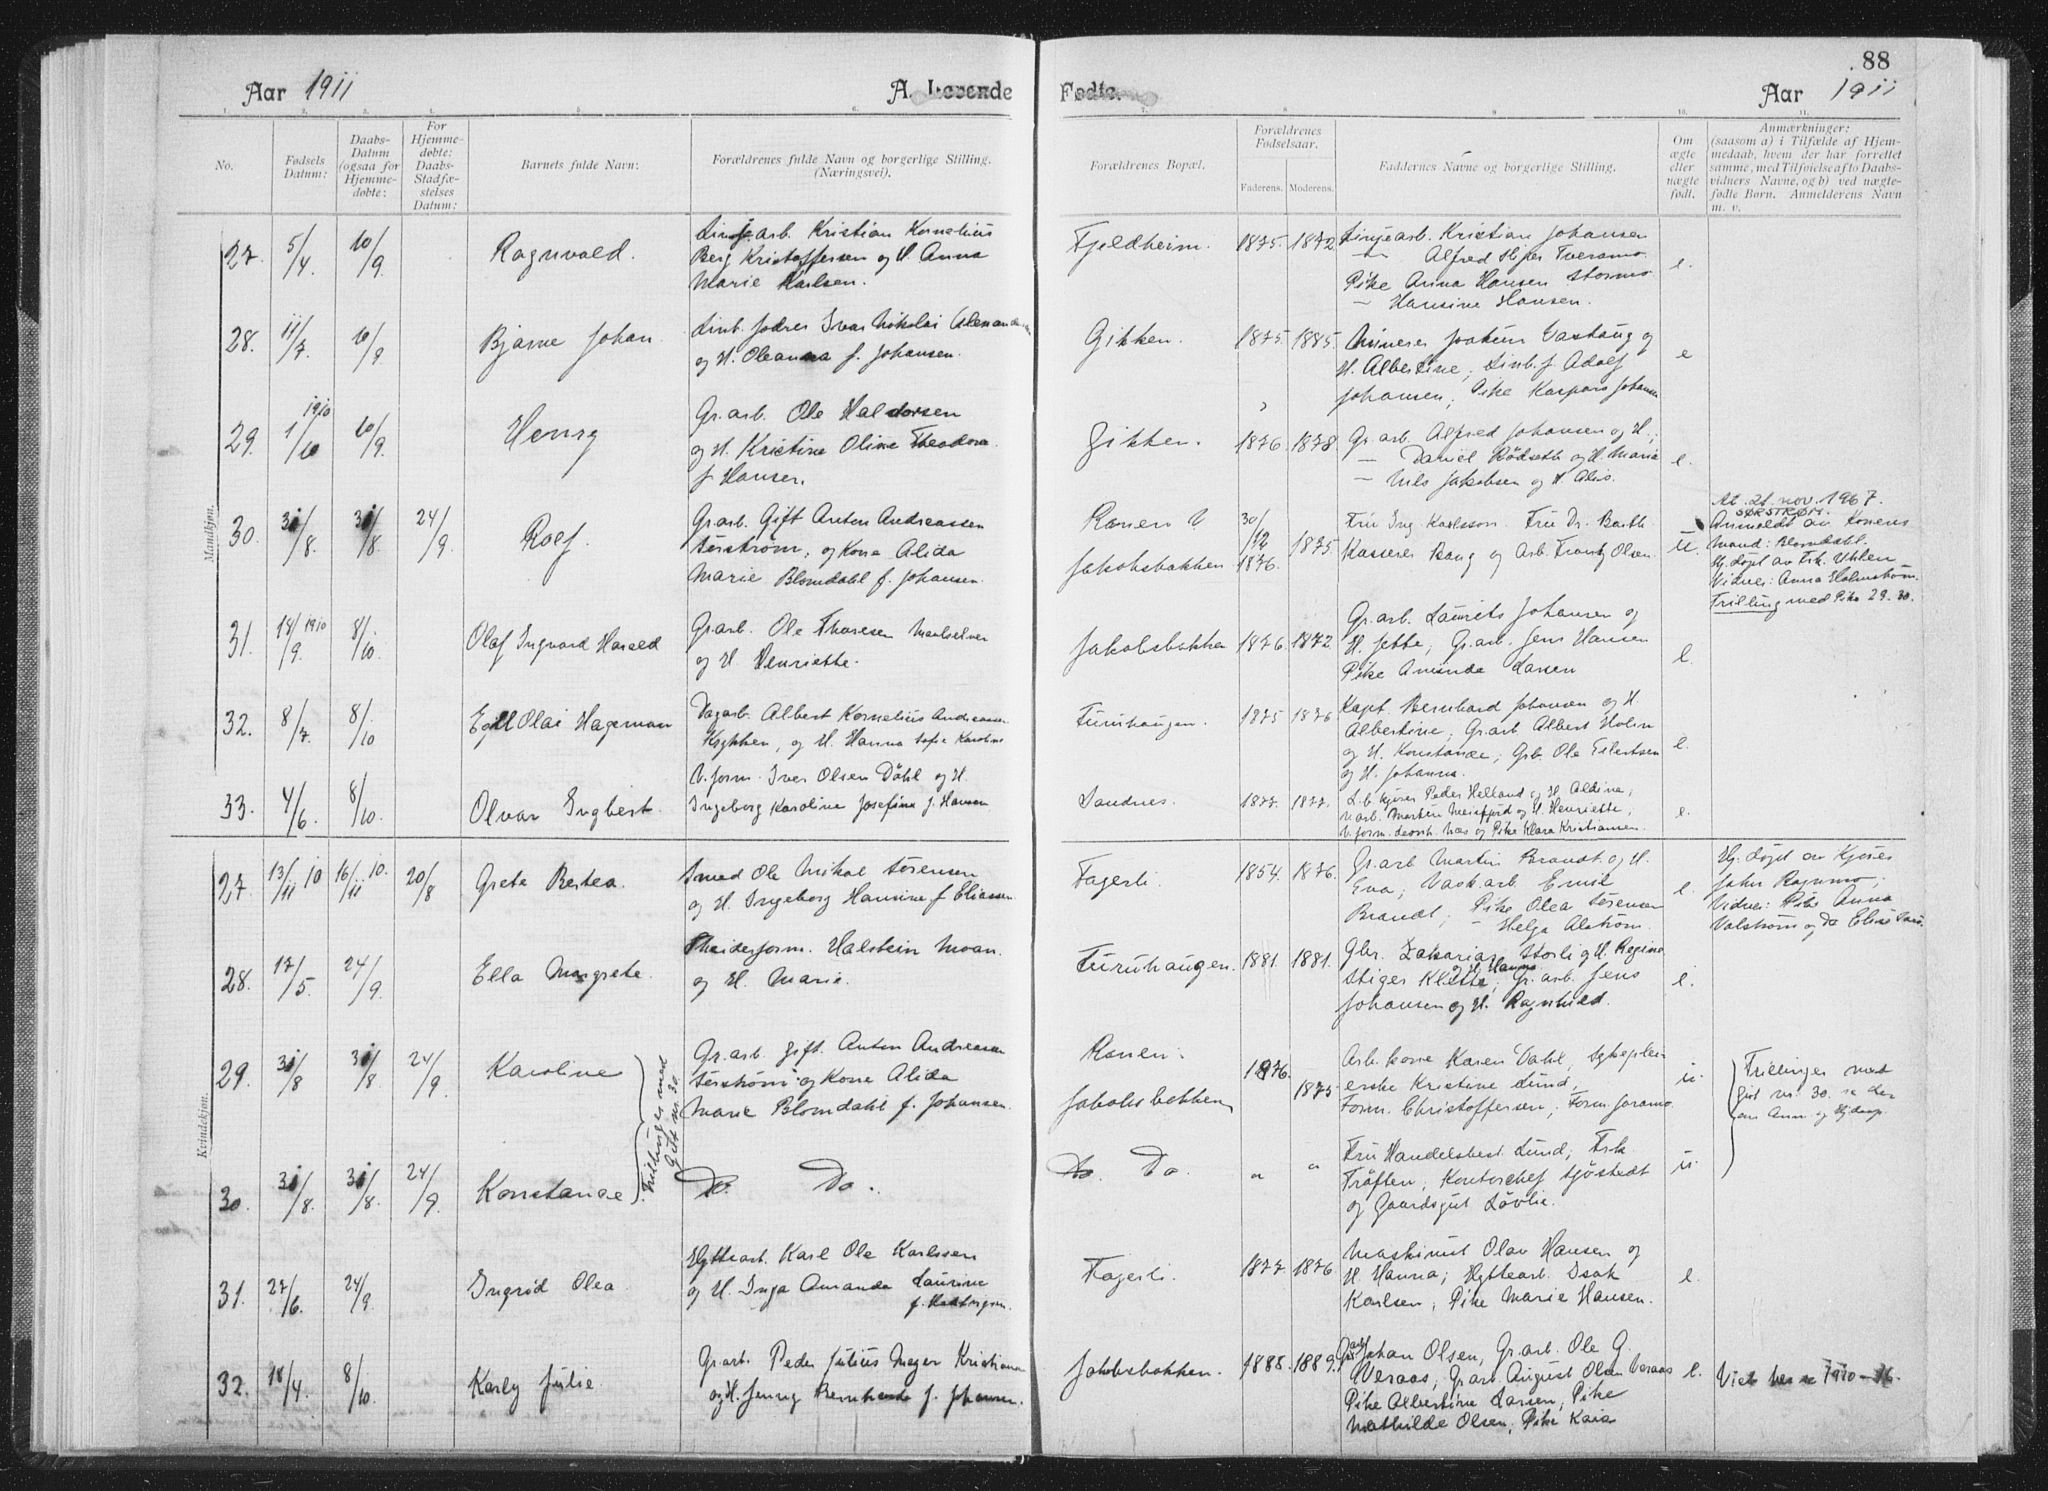 88
Aar 1911
A. Levende Fødte.
Aar 1911
1. 2. 3. 4. 5. 6. 7. 8. 9. 10. 11.
No.
Fødsels Datum:
Daabs-
Datum
(ogsaa for
Hjemme-
døbte:
For
Hjemme-
døbte:
Daabs-
Stadfæ-
stelses
Datum:
Barnets fulde Navn:
Forældrenes fulde Navn og borgerlige Stilling.
(Næringsvei).
Forældrenes Bopæl.
Forældrenes
Fødselsaar.
Faderens. Moderens.
Faddernes Navne og borgerlige Stilling.
Om
ægte
eller
uægte
født.
Anmærkninger:
(saasom a) i Tilfælde af Hjem-
medaab, hvem der har forrettet
samme, med Tilføielse af to Daabs-
vidners Navne, og b) ved uægte-
fødte Børn. Anmelderens Navn
m. v.
Mandkjøn.
27. 5/4. 10/9 Ragnvald.
Linjearb. Kristian Kornelius
Berg Kristoffersen og H. Anna
Marie Karlsen.
Fjeldheim. 1875. 1872.
Linjearb. Kristian Johansen
Alfred Tveramo
Pike Anna Hansen Stormo
— Hansine Hansen.
e.
28. 11/7. 10/9. Bjarne Johan.
Linb. fodrer Ivar Nikolai
og H. Oleanna f. Johansen.
Gikken. 1875. 1885.
Minerer Joakim Vashaug og
H. Albertine, Linb. f Adolf
Johansen, Pike Kaspara Johansen
e
29. 1/10 1910 10/9. Henry
Gr.arb. Ole Haldorsen
og H. Kristine Oline Theodora
f Hansen.
Gikken. 1876. 1878.
Gr. arb. Alfred Johansen og H.;
— Daniel Rödseth og H. Maria
— Nils Jakobsen og H. Alis.
e.
30. 31/8. 31/8 24/9. Rolf.
Gr.arb. Gift Anton Andreassen
Sörström, og Kone Alida
Marie Blomdahl f. Johansen.
Ronen
Jakobsbakken 30/12 1876. 1875.
Fru Ing. Karlsson. Fru Dr. Barth
Kasserer Bang og Arb. Frantz Olsen.
u.
21. nov. 1967.
SØRSTRØM.
Anmeldt av Konens
Mand: Blomdahl.
Hj.döpt av Frk. Uhlen
Vidner: Anna Holmström.
Trilling med Pike 29. 30.
31. 18/9. 1910 8/10. Olaf Ingvard Harald
Gr.arb. Ole Thoresen Maalselven
og H Henriette.
Jakobsbakken 1876. 1872.
Gr.arb. Laurits Johansen og
H. Jette, Gr.arb. Jens Hansen
Pike Aminda Larsen
e.
32. 8/7. 8/10 Egil Olai Hageman
Dagarb. Albert Kornelius Andreassen
Kykken, og H. Hanna Sofie Karoline
Furuhaugen. 1875 1876
Kapt. Bernhard Johansen og H
Albertine; Gr.arb Albert Holm
og H. Konstanse; Grb. Ole Eilertsen
og H. Johanna.
e.
33. 4/6. 8/10. Olvar Ingbert
V. form. Iver Olsen Dahl og H.
Ingeborg Karoline Josefine f. Hansen
Sandnes. 1877. 1877.
L.b. kjører Peder Helland og H. Aldine;
V.arb. Martin Meisfjord og H. Henriette,
Næs og Pike Klara Kristiansen.
e.
Kvindekjøn.
27. 13/11 10 16/11 10. 20/8 Grete Bertea.
Smed Ole Mikal Sørensen
og H. Ingeborg Hansine f Eliassen
Fagerli. 1854. 1876.
Gr.arb Martin Brandt og H.
Eva; Vask.arb. Emil
Brandt; Pike Olea Sørensen
— Helga Alström.
e.
Hj. döpt av Kjører
John Rognmo;
Vidner: Pike Anna
Valström og Do
28. 17/5. 24/9. Ella Margrete.
Skeiderform. Halstein Moan.
og H. Marie.
Furuhaugen. 1881. 1881.
Gbr. Zakarias Storli og H. Regine
Stiger Klette og H. Hanna, Gr.arb. Jens
Johansen og H. Ragnhild.
e.
29. 31/8 31/8. 24/9. Karoline
Gr.arb. gift. Anton Andreassen
Sörström og Kone Alida
Marie Blomdahl f. Johansen.
Ronen.
Jakobsbakken 1876. 1875
Arb. kone Karen Dahl, Sykeplei-
erske Kristine Lund,
Form. Christoffersen, Form. Joramo.
u
Trillinger med Gut nr. 30
Trillinger med
gut nr. 30. se der
om Anm. og Hjdaap.
30. 31/8. 31/8. 24/9. Konstanse
Do. Do.
Do. Do. " "
Fru Handelsbest. Lund, Frk
Tröften, Kontorchef Sjöstedt
og Gaardsgut Lövlie.
u
31. 27/6. 24/9. Ingrid Olea
Hyttearb. Karl Ole Karlssen
og H. Inga Amanda Laurine
Fagerli. 1877. 1876.
Maskinist Olav Hansen og
H. Hanna; Hyttearb. Isak
Karlsen, Pike Marie Hansen.
e.
32. 18/4. 8/10. Karly Julie.
Gr.arb. Peder Julius Meyer Kristiansen
og H. Jenny Bernharde f. Johansen.
Jakobsbakken. 1888. 1889.
Johan Olsen, Gr.arb. Ole G.
Veraas, Gr.arb. August Olsen Veraas
Pike Albertine Larsen, Pike
Mathilde Olsen, Pike Kaia
e.
Viet her n 1910–16.